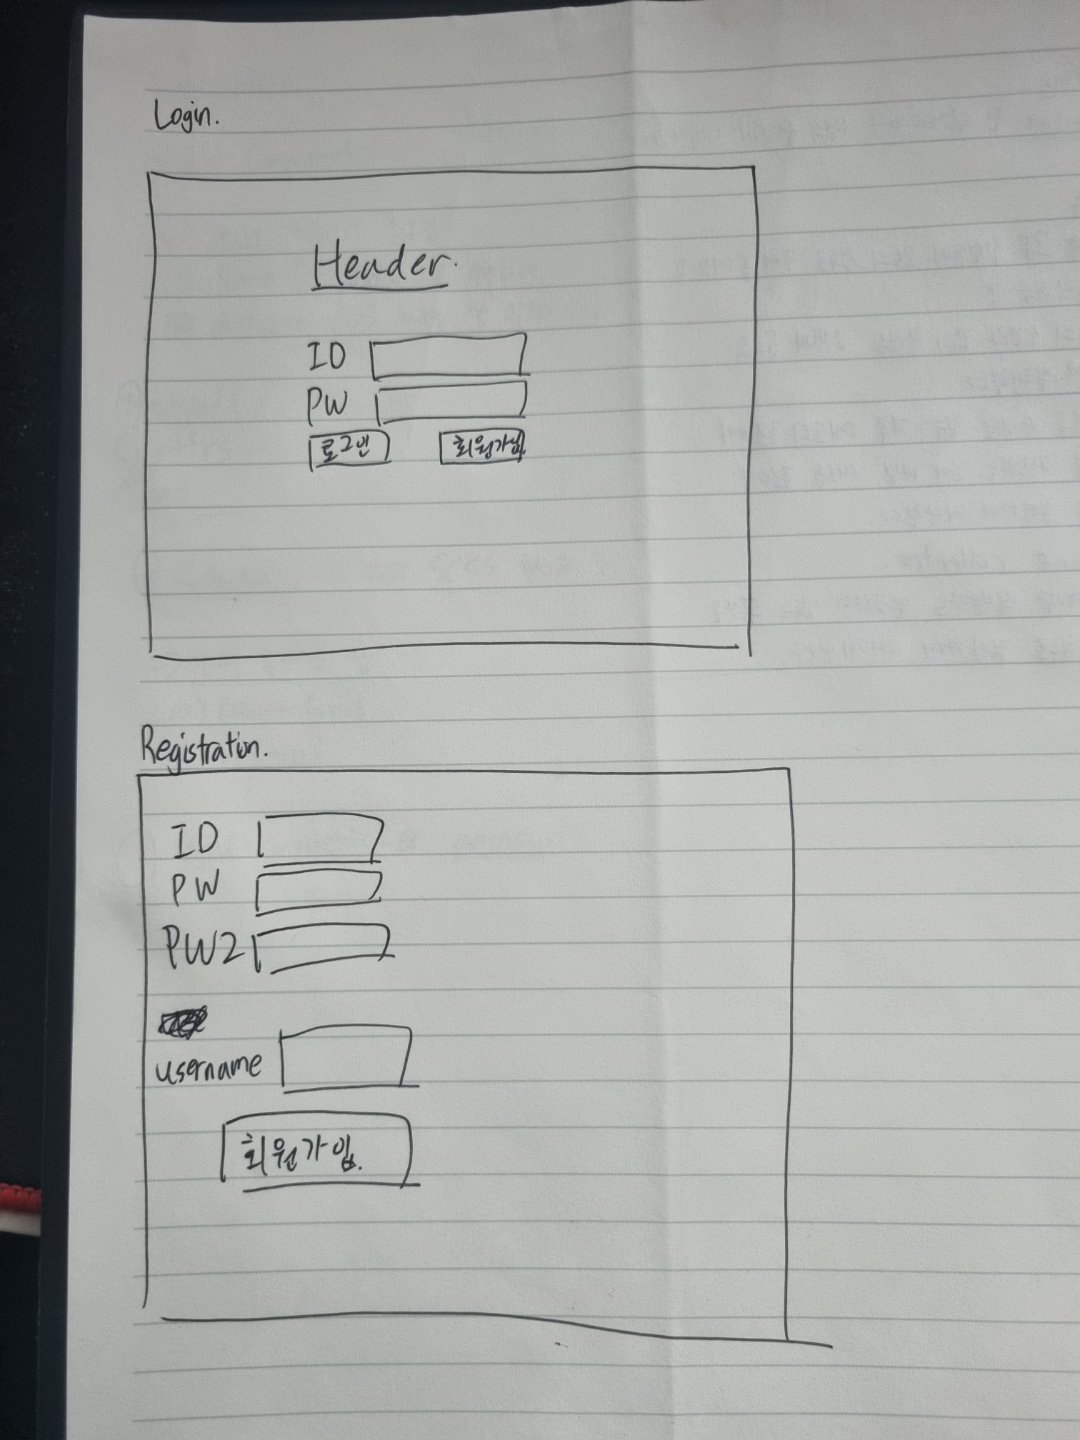 Login.
Header.
ID
PW
로그인 회원가입
Registration.
ID
PW
PW2
username
회원가입.